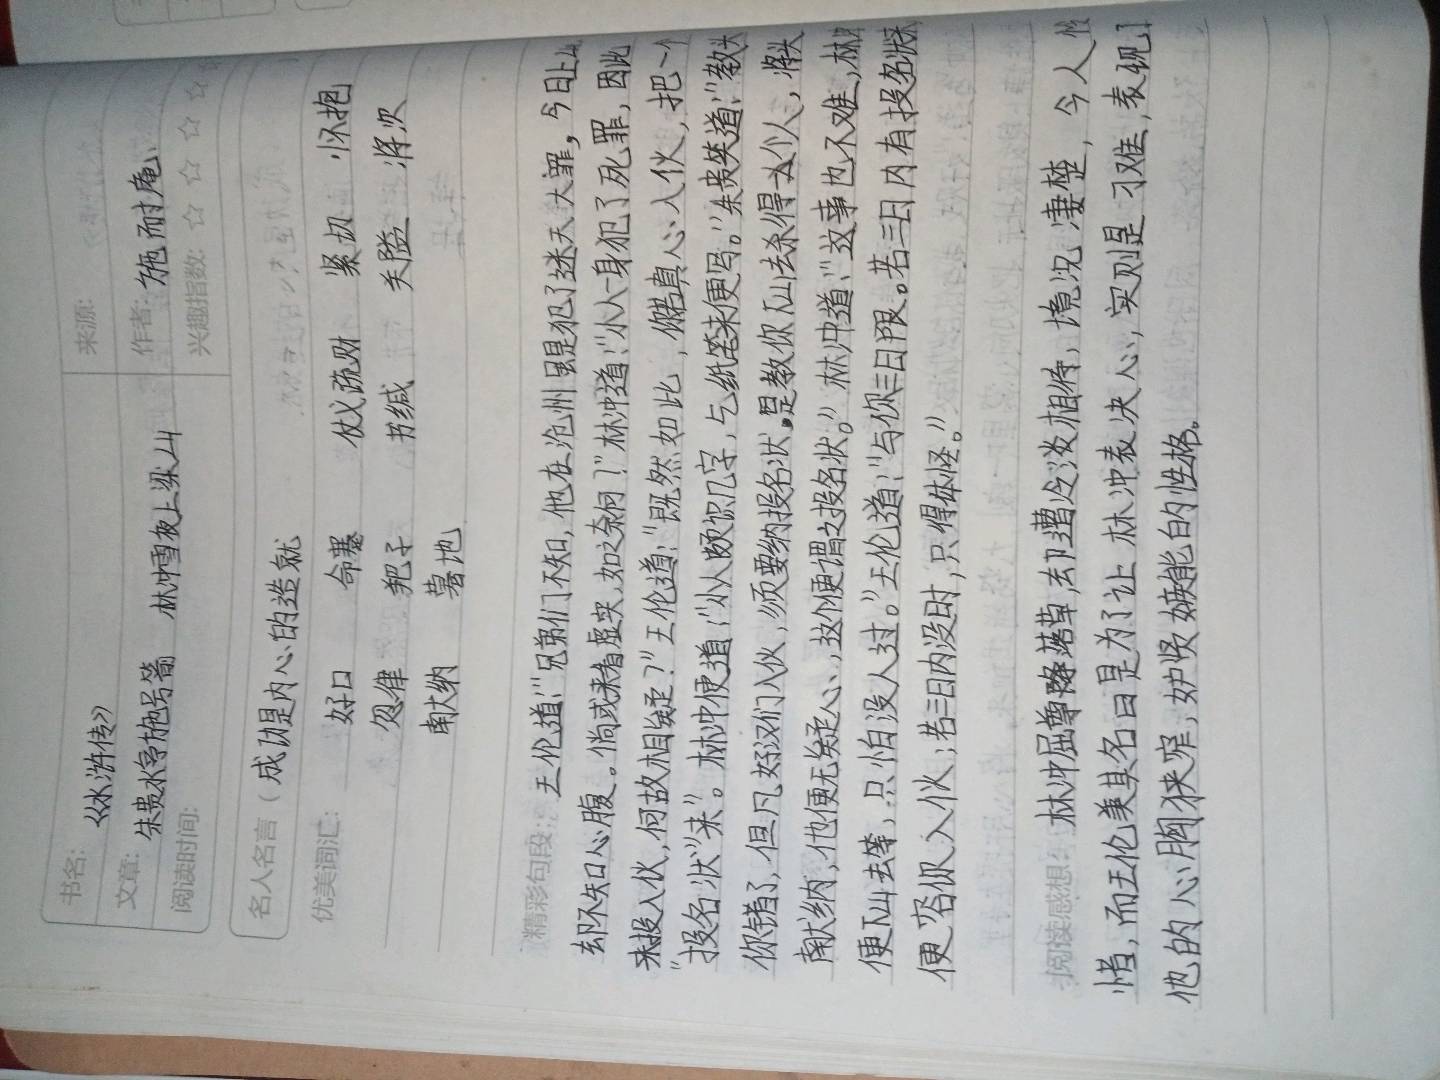 书名: 《水浒传》 来源:
文章: 朱贵水亭施号箭 林冲雪夜上梁山 作者: 施耐庵
阅读时间: 兴趣指数: ☆ ☆ ☆ ☆
名人名言(成功是内心的造就
优美词汇: 好口 命蹇 仗义疏财 紧劫 怀抱
忽律 耙子 书缄 关隘 将次
献纳 墓地
精彩句段: 王伦道:“兄弟们不知,他在沧州虽是犯了迷天大罪,今日上山
却不知心腹。倘或来看虚实,如之奈何?”林冲道:“小人一身犯了死罪,因此
来投入伙,何故相疑?”王伦道:“既然如此,你若真心入伙,把一个
“投名状”来”。林冲便道:“小人颇识几字,乞纸笔来便写。”朱贵笑道:“教头
你错了,但凡好汉们入伙,须要纳投名状。是教你下山去杀得一个人,将头
献纳,他便无疑心,这个便谓之投名状。”林冲道:“这事也不难,林冲
便下山去等,只怕没人过。”王伦道:“与你三日限。若三日内有投名状来
便容你入伙;若三日内没时,只得休怪。”
阅读感想: 林冲屈尊降落草,却遭冷淡相待,境况凄楚,令人怜
惜,而王伦美其名曰是为了让林冲表决心,实则是刁难,表现了
他的心胸狭窄,妒贤嫉能的性格。